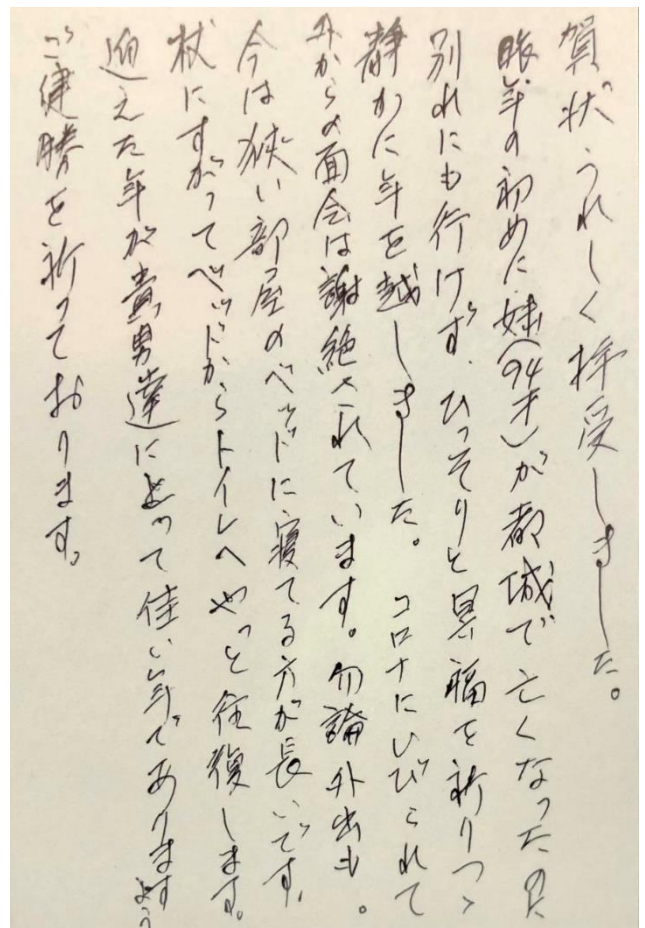 賀状うれしく拝受しました。
昨年の初めに妹(94才)が都城で亡くなったのに
別れにも行けず、ひっそりと冥福を祈りつゝ
静かに年を越しました。 コロナにいびられて
外からの面会は謝絶されています。勿論外出も。
今は狭い部屋のベッドに寝てる方が長いです。
杖にすがってベッドからトイレへやっと往復します。
迎えた年が貴男達にとって佳い年でありますよう
ご健勝を祈っております。